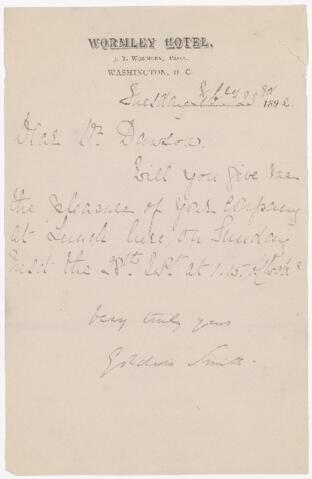 WORMLEY HOTEL,
J. T. WORMLEY, PROP.
WASHINGTON, D. C.
Tuesday 189
Dear Dr. Dawson.
Will you give me
the pleasure of your company
at Lunch here, on Sunday
next the 28th at 1.15. o'clock
Very truly yours
Goldwin Smith.